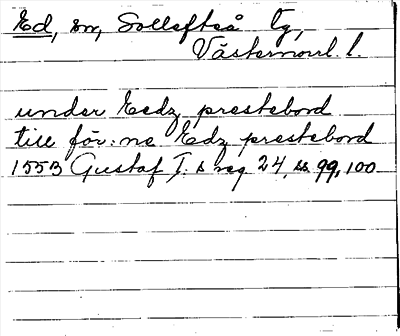 Ed, sn, Sollefteå tg,
Västernorrl. l.
under Eedz prestebord
till för:ne Edz prestebord
1553 Gustaf I:s reg 24, ss. 99, 100